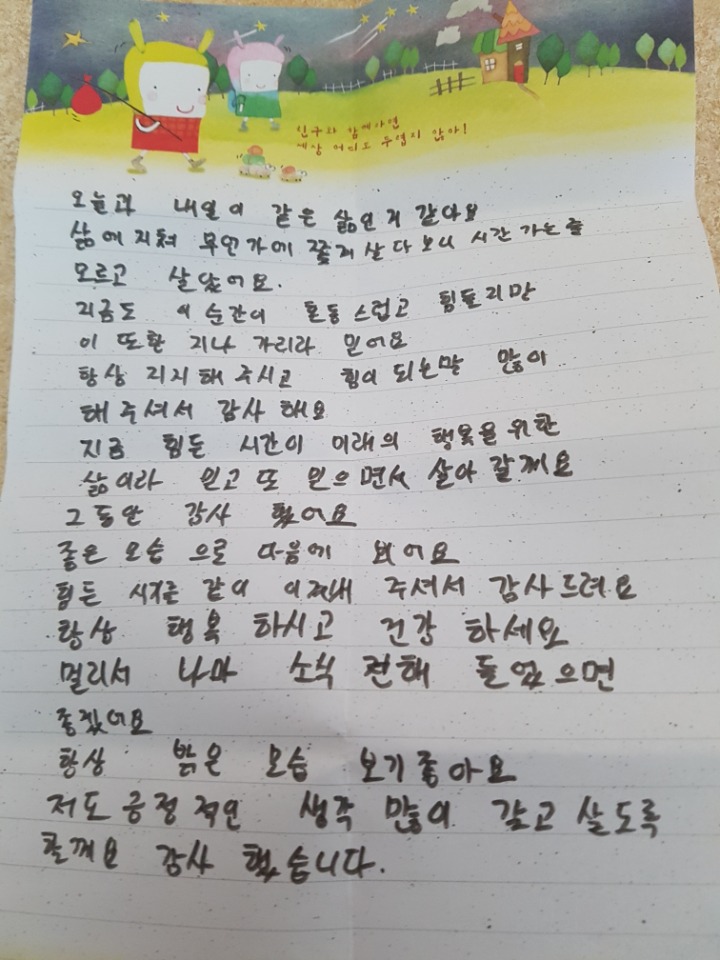 친구와 함께가면
세상 어디도 두렵지 않아!
오늘과 내일이 같은 삶인거 같아요
삶에 지쳐 무언가에 쫓겨 살다보니 시간 가는줄
모르고 살았어요.
지금도 이 순간이 혼동스럽고 힘들지만
이 또한 지나 가리라 믿어요
항상 지지해 주시고 힘이 되는말 많이
해 주셔서 감사 해요
지금 힘든 시간이 미래의 행복을 위한
삶이라 믿고 또 믿으면서 살아 갈께요
그동안 감사 했어요
좋은 모습 으로 다음에 뵈어요
힘든 시기를 같이 이겨내 주셔서 감사드려요
항상 행복 하시고 건강 하세요
멀리서 나마 소식 전해 들었으면
좋겠어요
항상 밝은 모습 보기좋아요
저도 긍정적인 생각 많이 갖고 살도록
할께요 감사 했습니다.